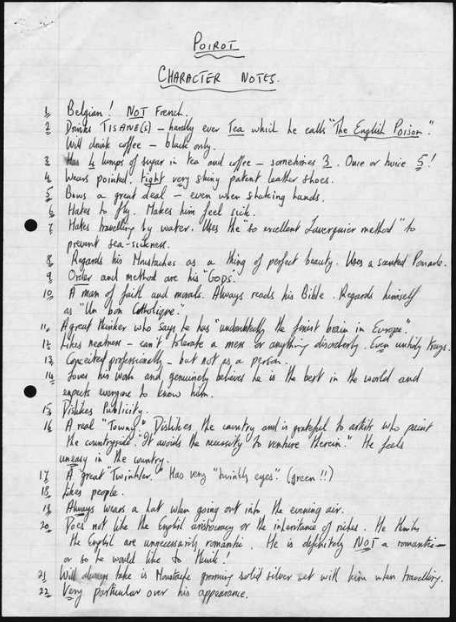 POIROT
CHARACTER NOTES.
1. Belgian! NOT French.
2. Drinks TISANE(S) – hardly ever Tea which he calls "The English Poison".
Will drink coffee – black only.
3. Has 4 lumps of sugar in tea and coffee – sometimes 3. Once or twice 5!
4. Wears pointed, tight, very shiny patent leather shoes.
5. Bows a great deal – even when shaking hands.
6. Hates to fly. Makes him feel sick.
7. Hates travelling by water. Uses the "so excellent Laverguier method" to
prevent sea-sickness.
8. Regards his Moustaches as a thing of perfect beauty. Uses a scented Pomade.
9. Order and method are his "GODS".
10. A man of faith and morals. Always reads his Bible. Regards himself
as "Un bon Catholique.
11. A great thinker who says he has "undoubtedly the finest brain in Europe".
12. Likes neatness – can't tolerate a mess or anything disorderly. Even untidy trays.
13. Conceited professionally – but not as a person.
14. Loves his work and genuinely believes he is the best in the world and
expects everyone to know him.
15. Dislikes Publicity.
16. A real "Towny". Dislikes the country and is grateful to artists who paint
the countryside. "It avoids the necessity to venture therein." He feels
uneasy in the country.
17. A great "Twinkler." Has very "twinkly eyes". (green!!)
18. Likes people.
19. Always wears a hat when going out into the evening air.
20. Does not like the English aristocracy or the inheritance of riches. He thinks
the English are unnecessarily romantic. He is definitely NOT a romantic –
or so he would like to think.
21. Will always take is Moustache grooming solid silver set with him when travelling.
22. Very particular over his appearance.